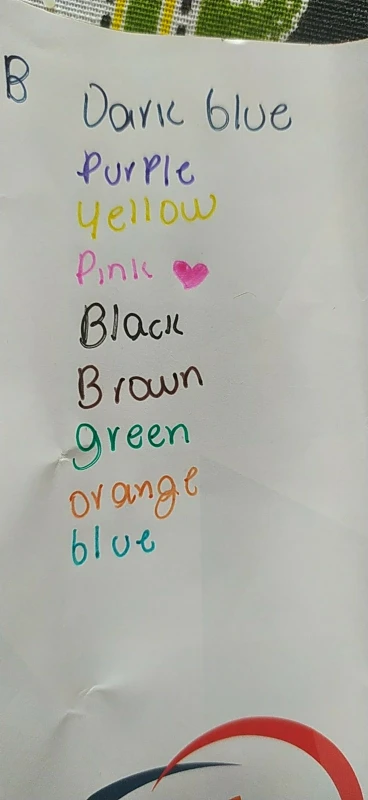 B
Dark blue
Purple
yellow
Pink
Black
Brown
green
orange
blue